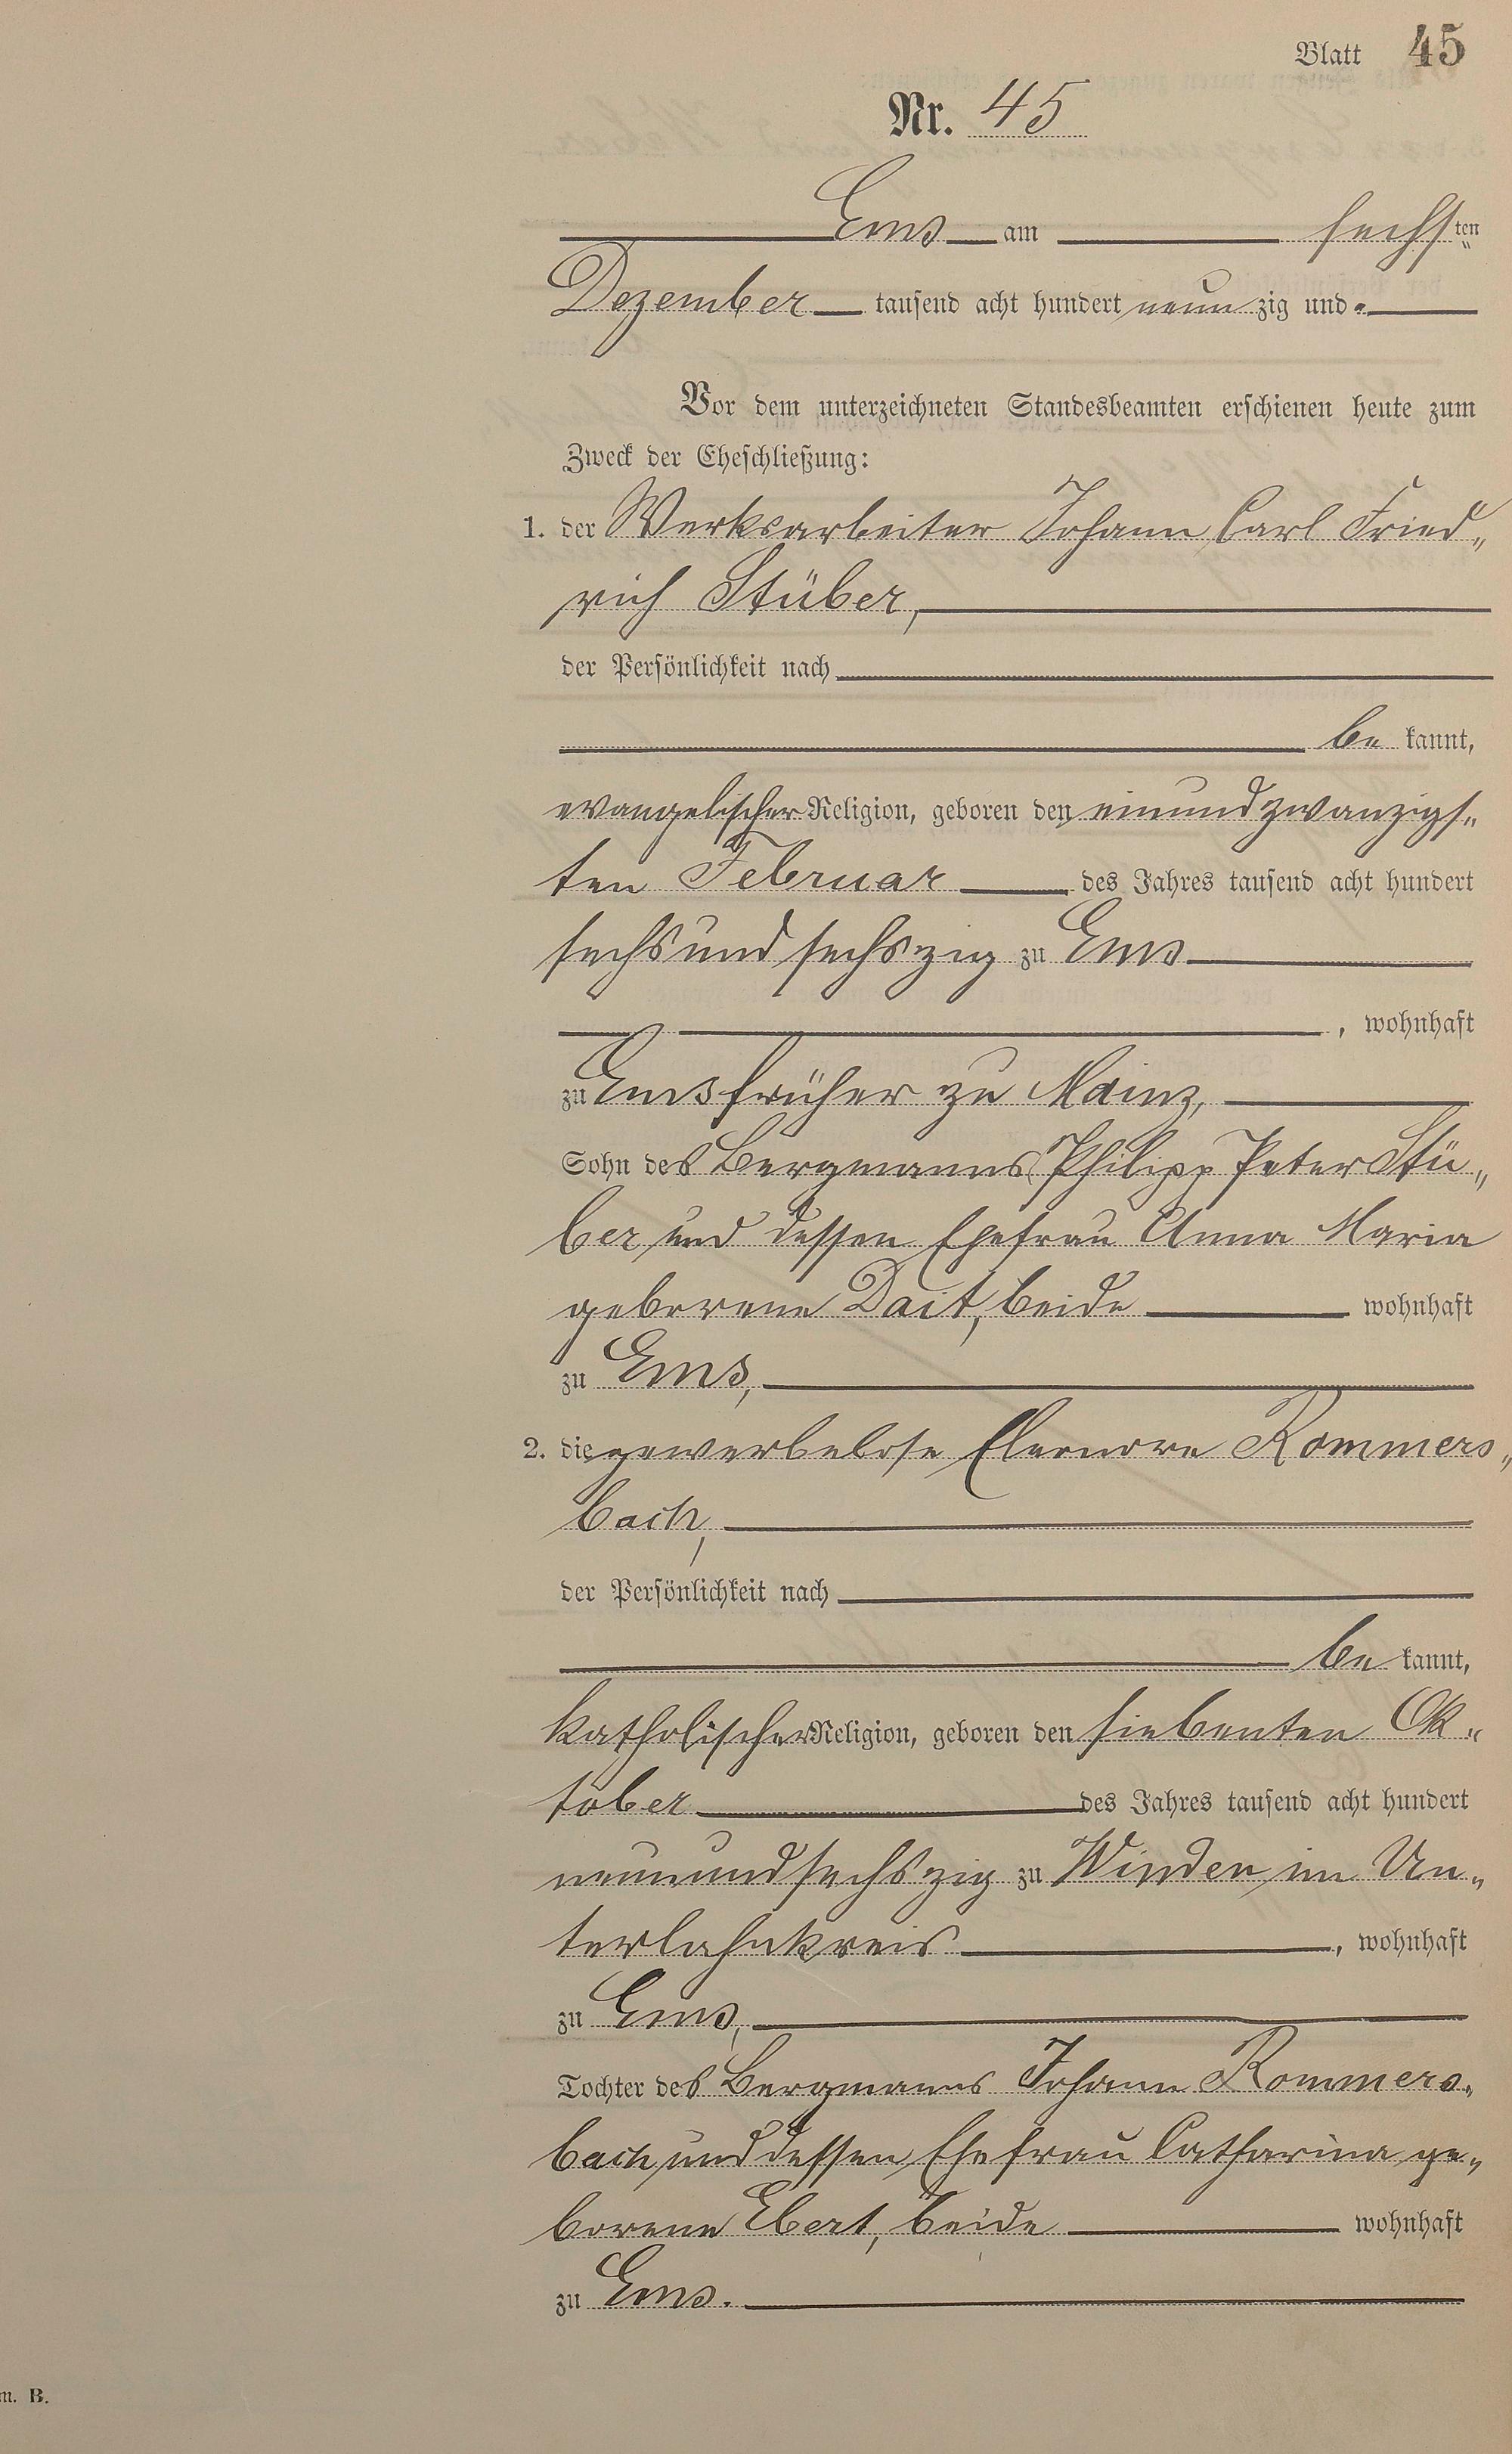 Blatt 45
Nr. 45
Ems am sechsten
Dezember tausend acht hundert neunzig und
Vor dem unterzeichneten Standesbeamten erschienen heute zum
Zweck der Eheschließung:
1. der Werksarbeiter Johann Carl Fried„
rich Stüber,
der Persönlichkeit nach
be kannt,
evangelischer Religion, geboren den einundzwanzigs„
ten Februar des Jahres tausend acht hundert
sechsundsechszig zu Ems
, wohnhaft
zu Ems früher zu Mainz,
Sohn des Bergmanns Philipp Peter Stü„
ber und dessen Ehefrau Anna Maria
geborene Dait, beide wohnhaft
zu Ems,
2. die gewerbelose Eleonore Rommers„
bach,
der Persönlichkeit nach
be kannt,
katholischer Religion, geboren den siebenten Ok„
tober des Jahres tausend acht hundert
neunundsechszig zu Winden im Un„
terlahnkreis, wohnhaft
zu Ems,
Tochter des Bergmanns Johann Rommers„
bach und dessen Ehefrau Catharina ge„
borene Ebert, beide wohnhaft
zu Ems.
m. B.